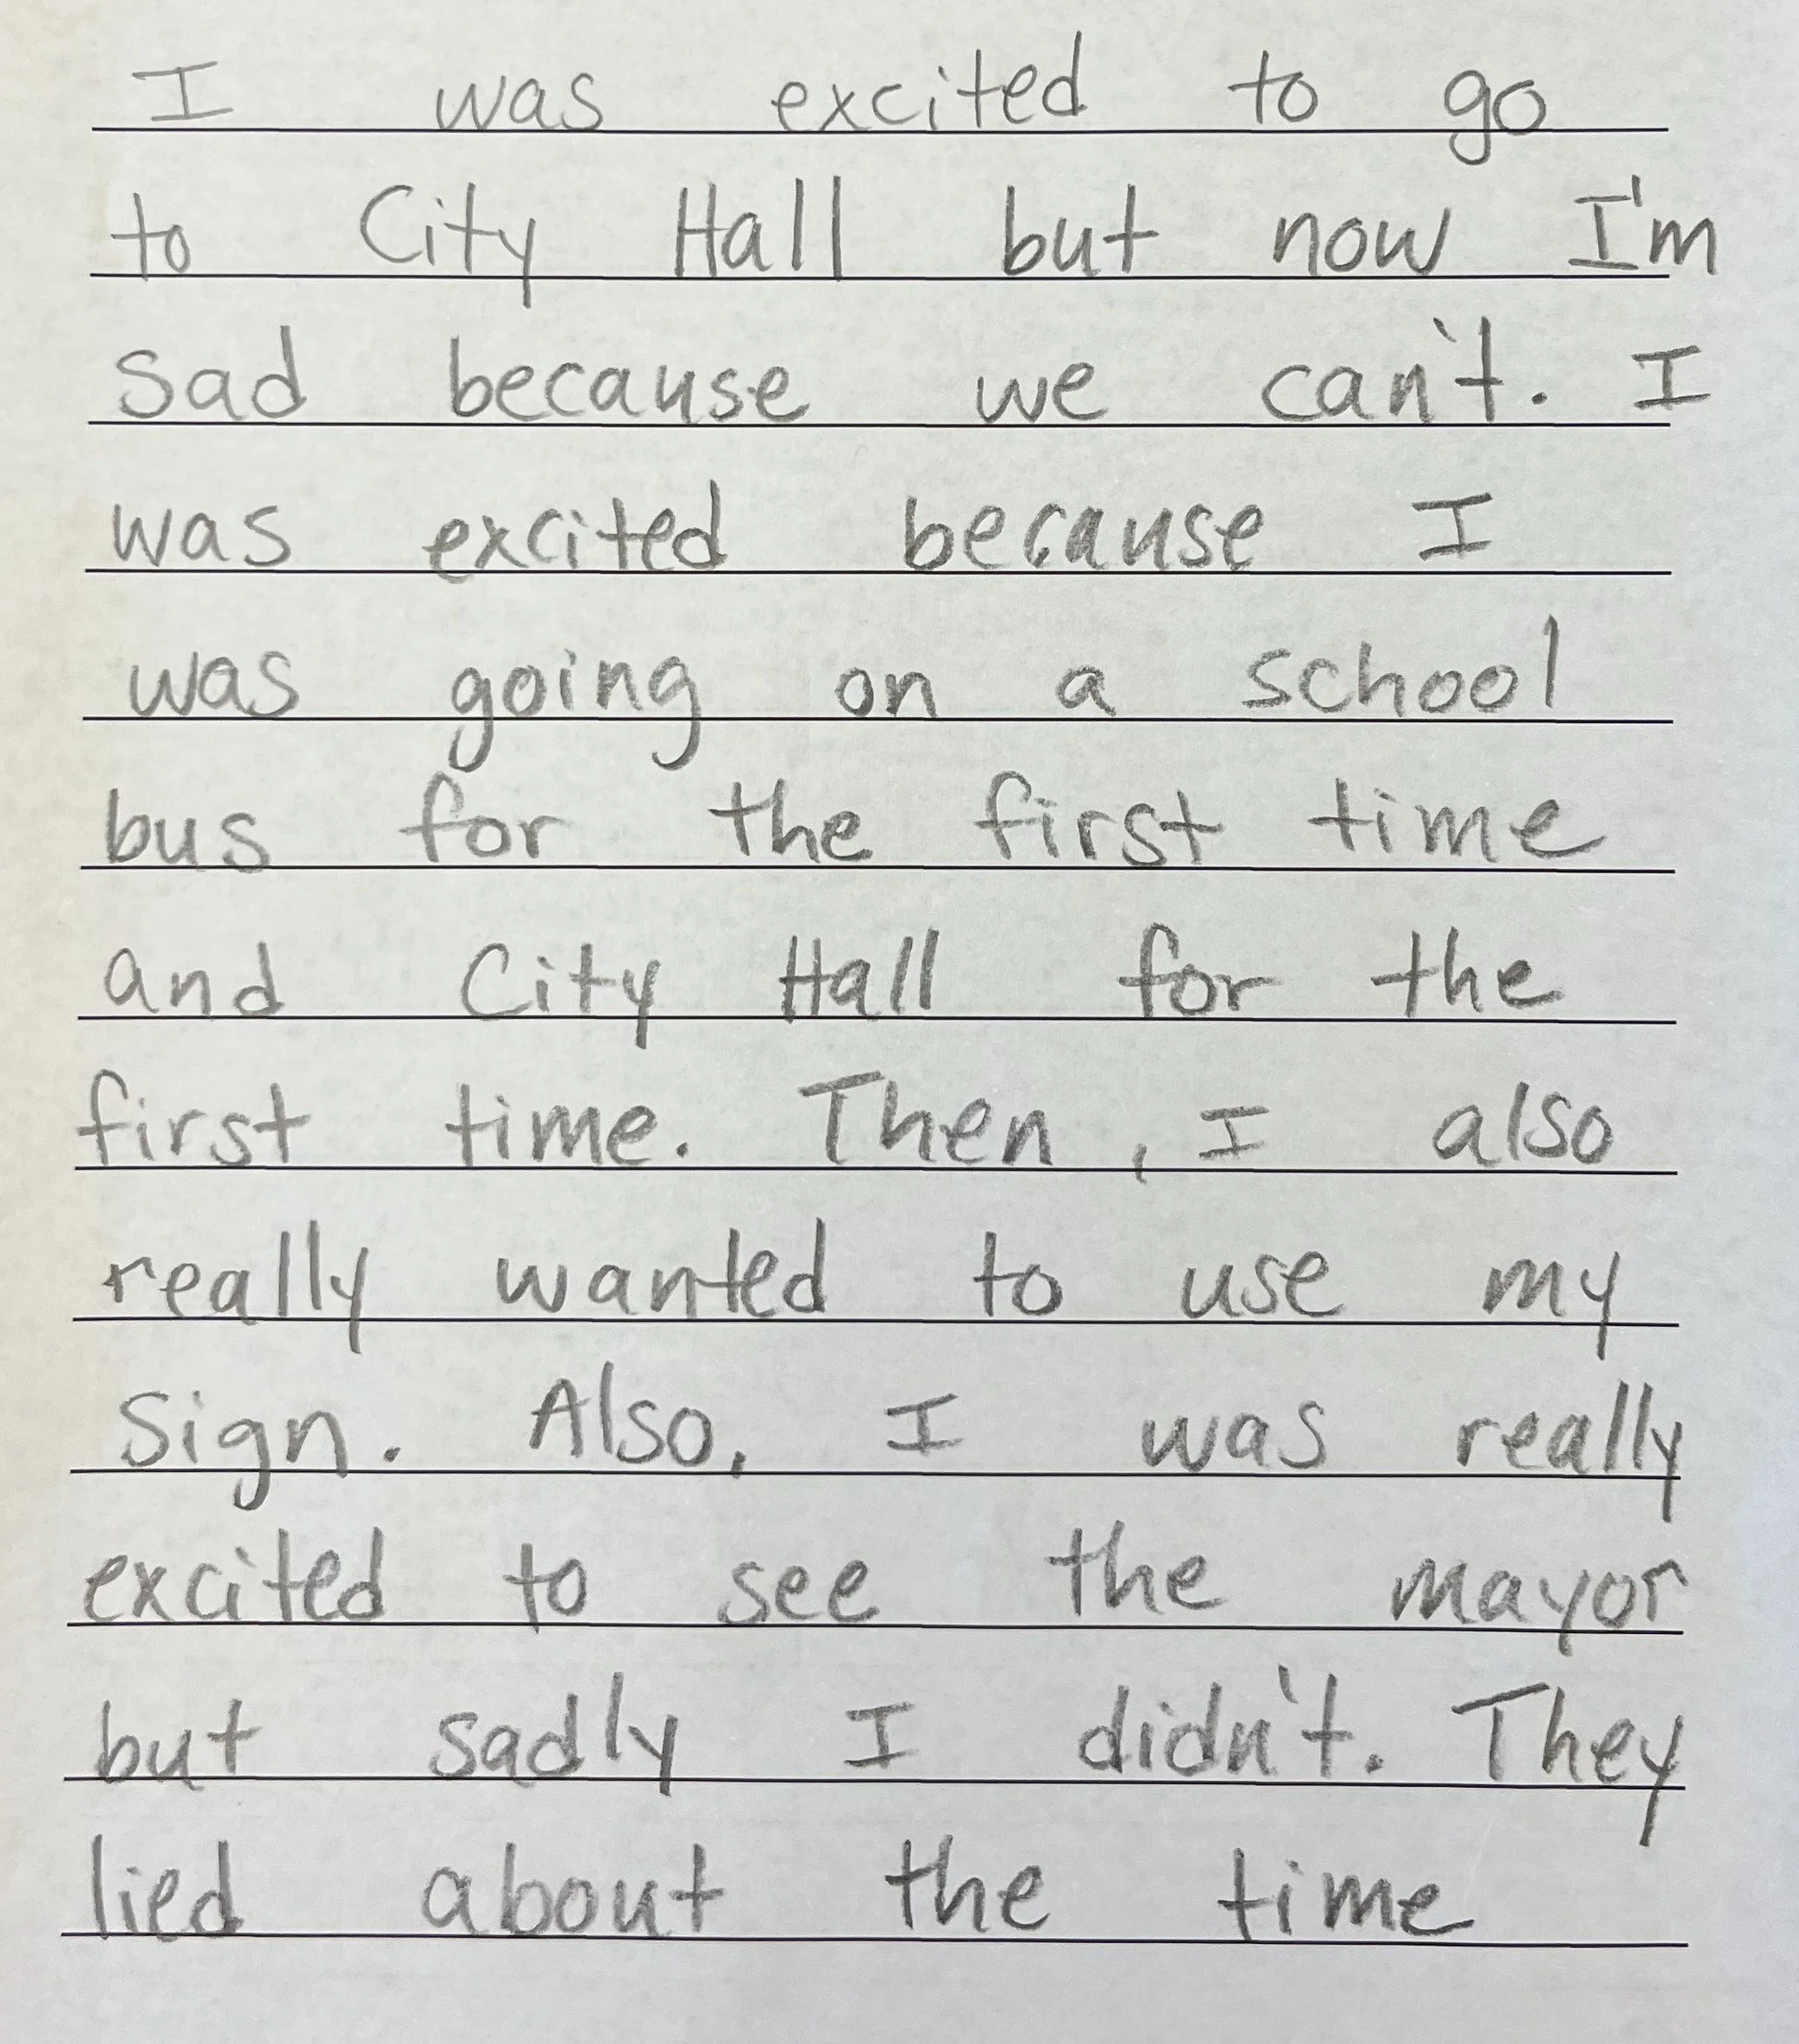 I was excited to go
to City Hall but now I'm
sad because we can't. I
was excited because I
was going on a school
bus for the first time
and City Hall for the
first time. Then, I also
really wanted to use my
sign. Also, I was really
excited to see the mayor
but sadly I didn't. They
lied about the time